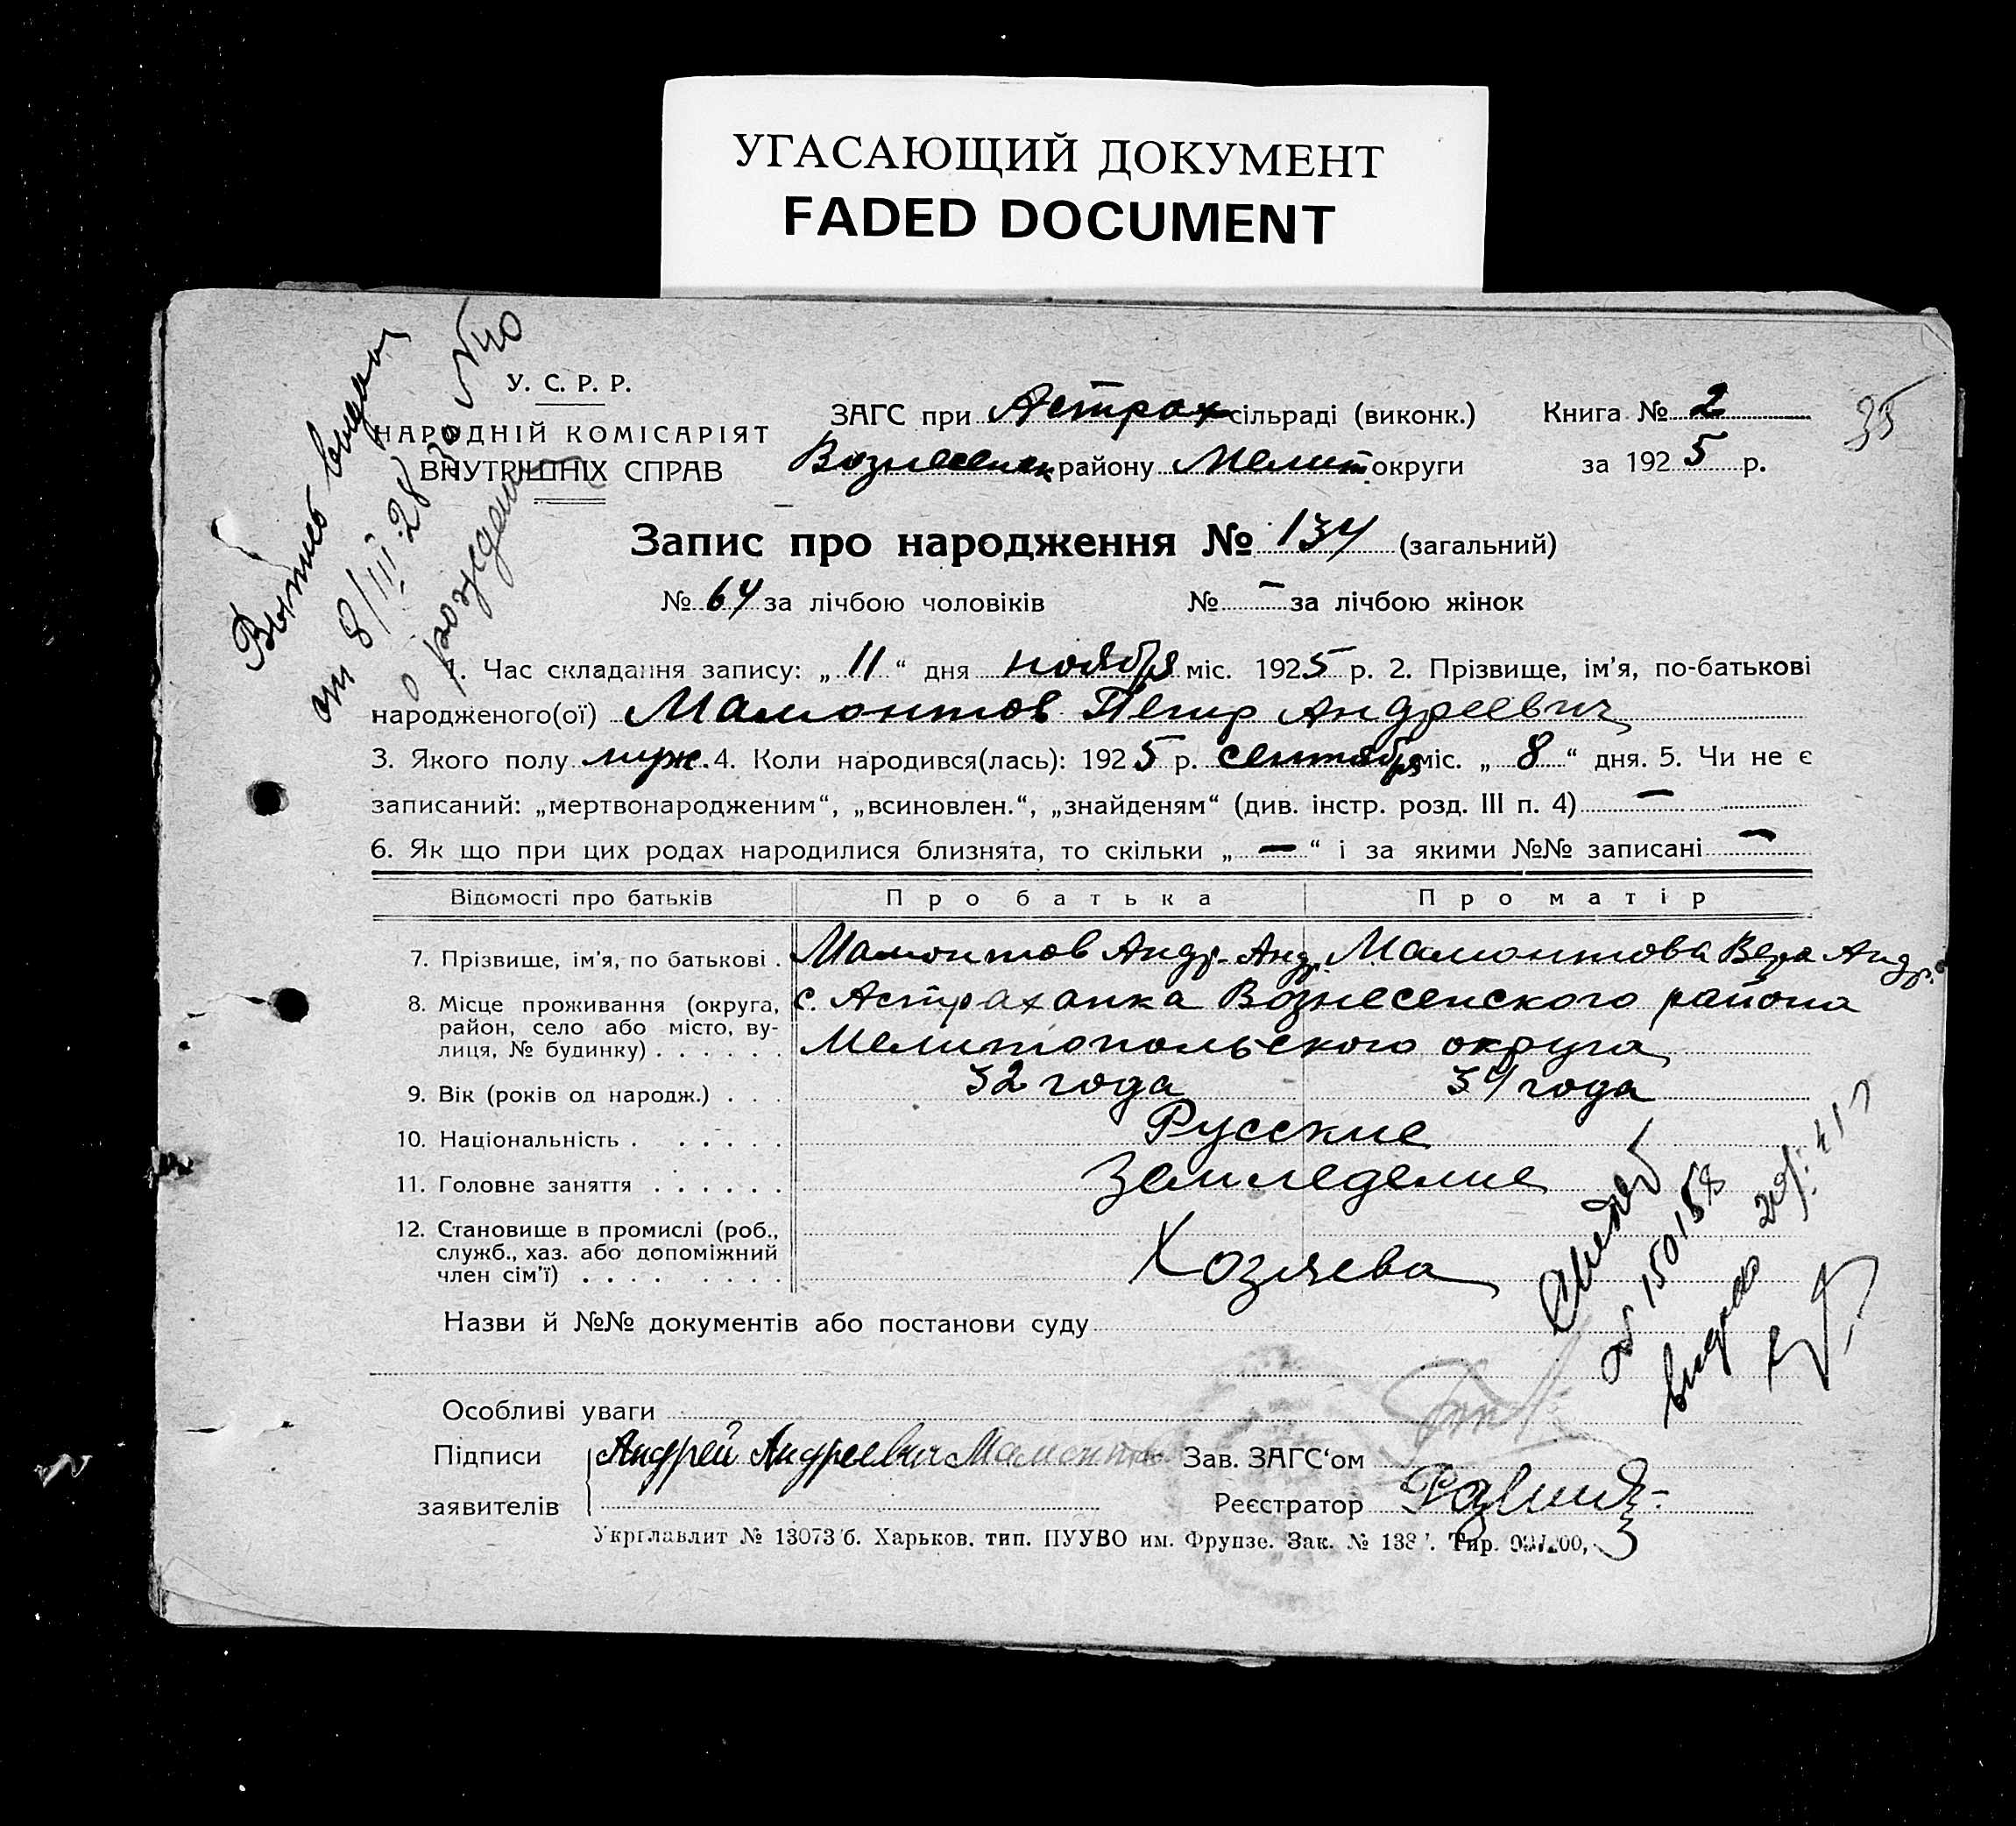 УГАСАЮЩИЙ ДОКУМЕНТ
FADED DOCUMENT
У. С. Р. Р.
НАРОДНІЙ КОМІСАРІЯТ
ВНУТРІШНІХ СПРАВ
ЗАГС при Астрах сільраді (виконк.)
Вознесенск району Мелит округи
Книга № 2
за 1925 р.
35
Выпись выдан
от 8/III 28
№ 40
о рождени
Запис про народження № 134 (загальний)
№ 64 за лічбою чоловіків № — за лічбою жінок
1. Час складання запису: „ 11 “ дня ноября міс. 1925 р. 2. Прізвище, ім'я, по-батькові
народженого(ої) Мамонтов Петр Андреевич
3. Якого полу муж. 4. Коли народився(лась): 1925 р. сентября міс. „ 8 “ дня. 5. Чи не є
записаний: „мертвонародженим“, „всиновлен.“, „знайденям“ (див. інстр. розд. III п. 4) —
6. Як що при цих родах народилися близнята, то скільки „ — “ і за якими №№ записані —
Відомості про батьків Про батька Про матір
7. Прізвище, ім'я, по батькові . Мамонтов Андр. Андр. Мамонтова Вера Андр.
8. Місце проживання (округа, район, село або місто, ву- лиця, № будинку) . . . . . .
с. Астраханка Вознесенского района
Мелитопольского округа
9. Вік (років од народж.) . . . 32 года 34 года
10. Національність . . . . . . Русские
11. Головне заняття . . . . . . Земледелие
12. Становище в промислі (роб., служб., хаз. або допоміжний член сім'ї) . . . . . . . .
Хозяева
Назви й №№ документів або постанови суду
150158
Особливі уваги
Підписи
заявителів
Андрей Андреевич Мамонтов
Зав. ЗАГС‘ом
Реєстратор
Укрглавлит № 13073/б. Харьков, тип. ПУУВО им. Фрунзе. Зак. № 138 Тир.